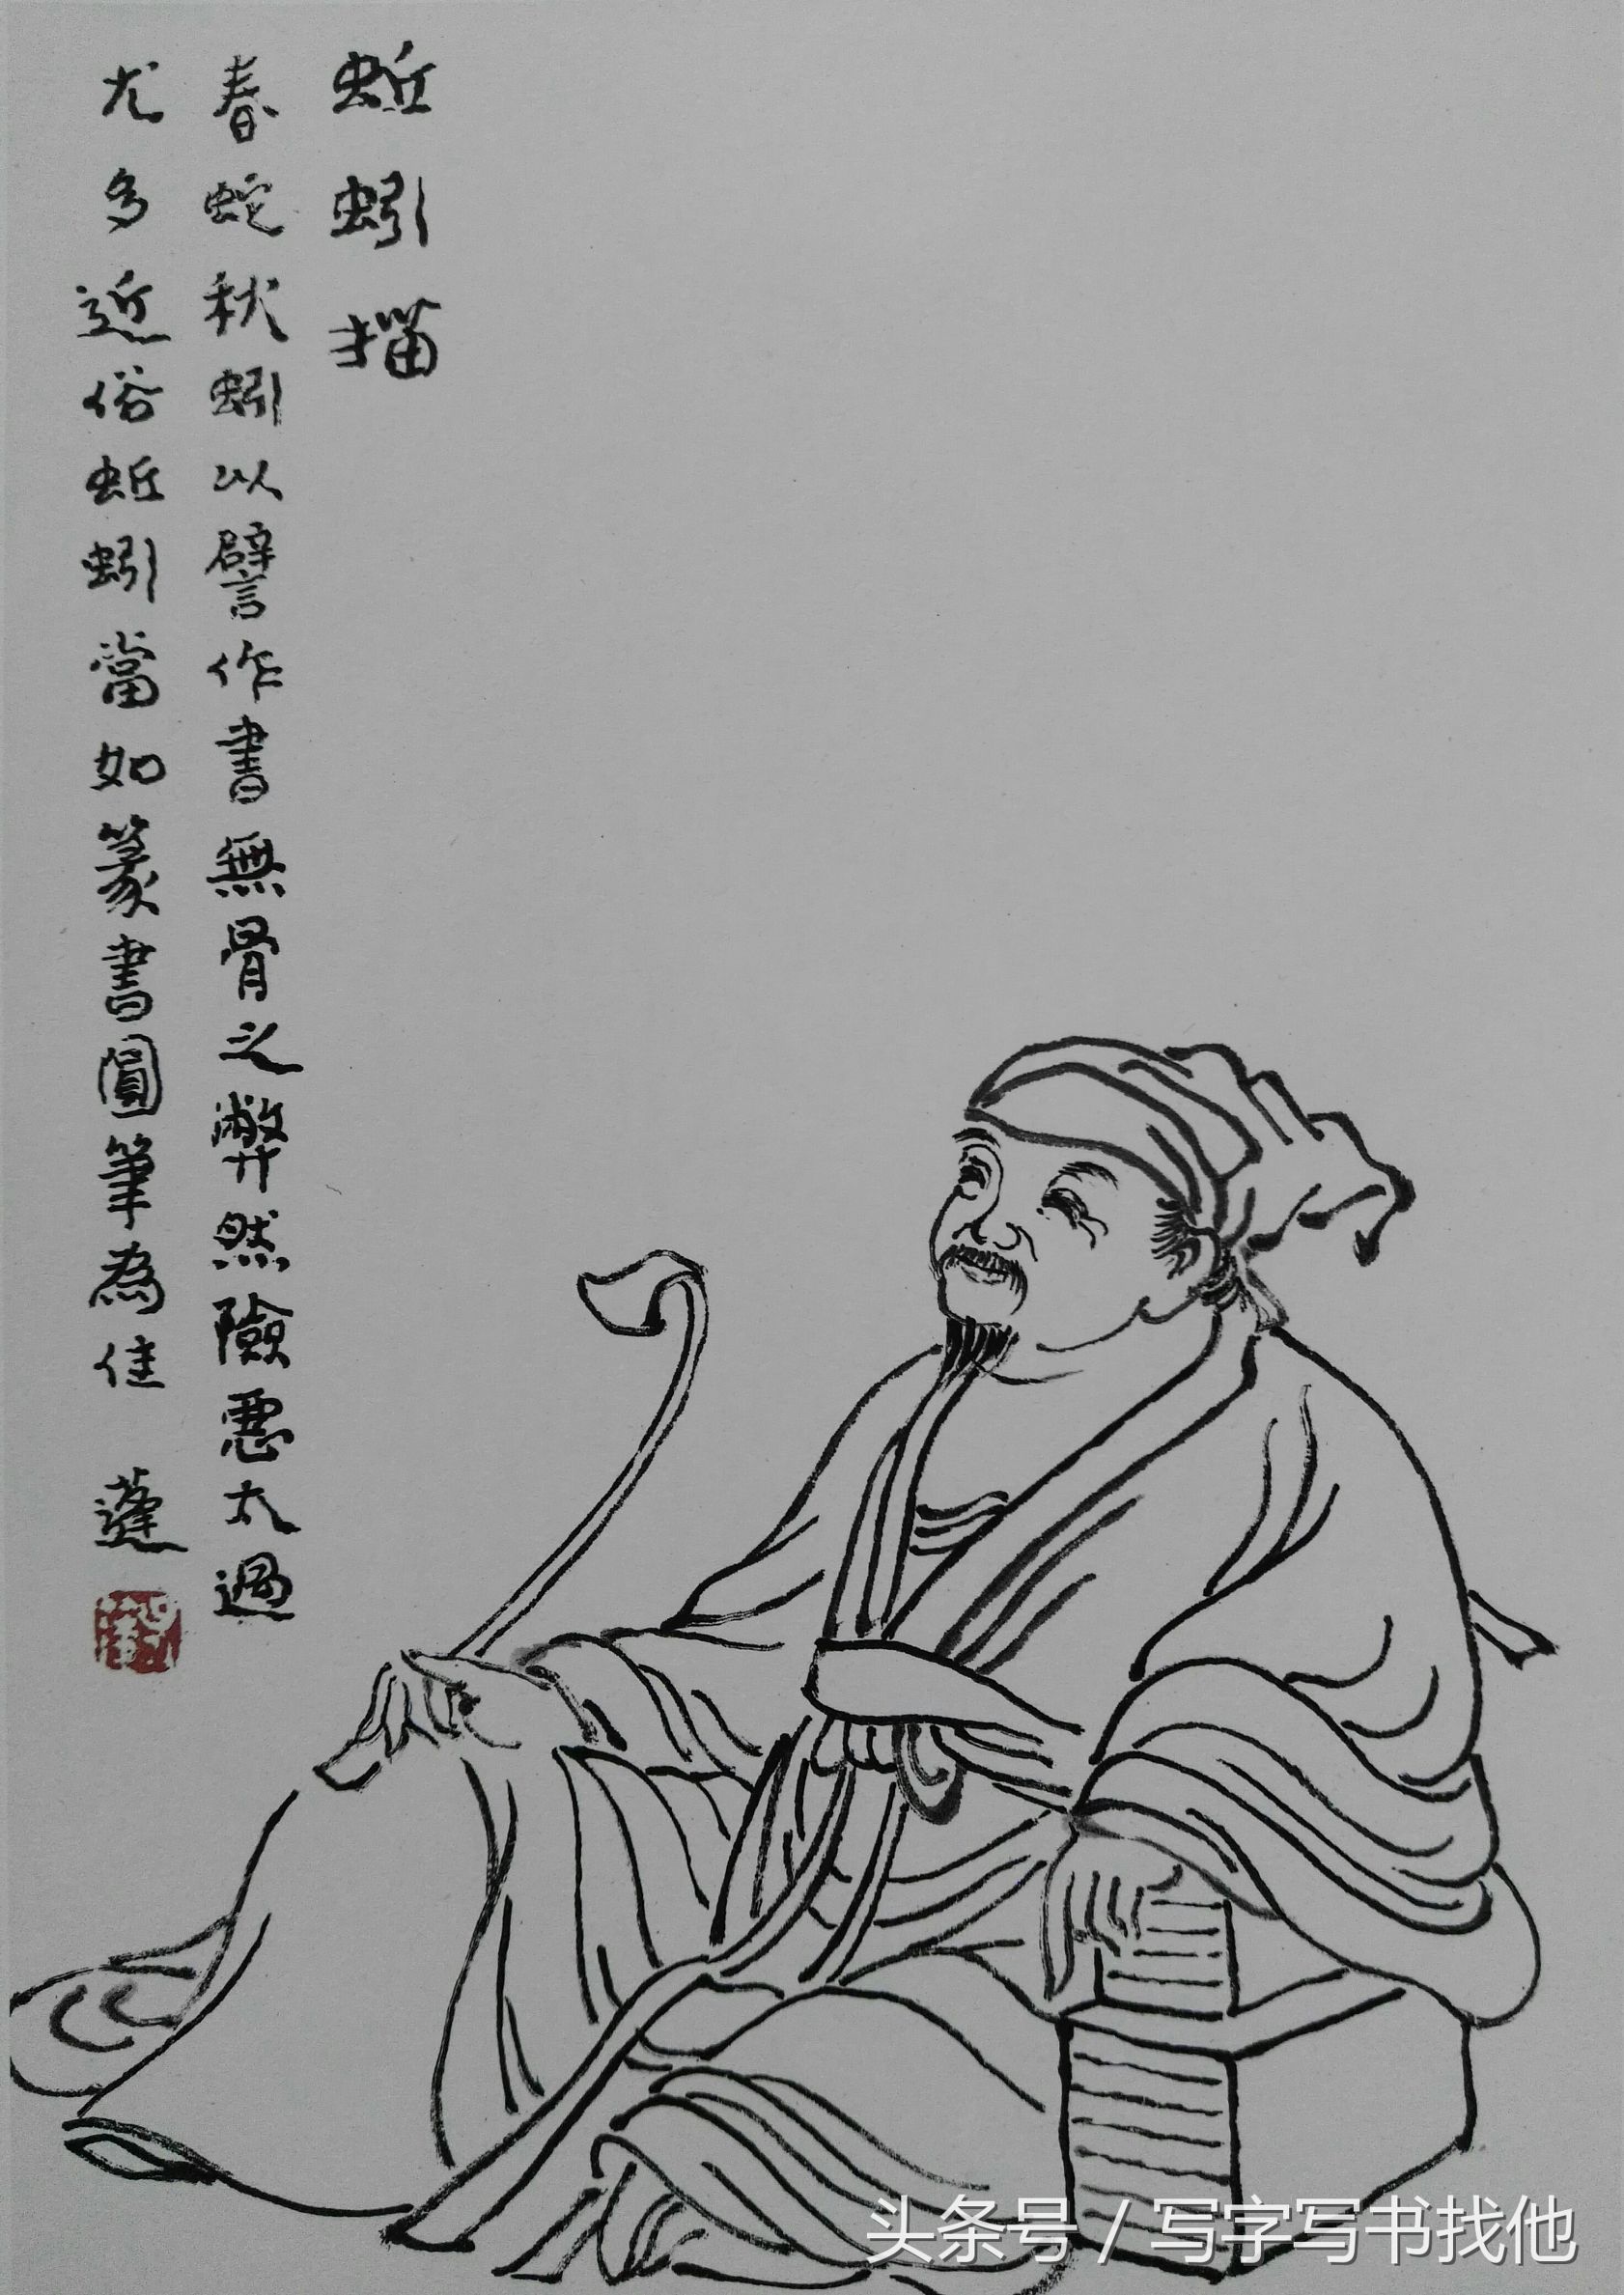 蚯蚓描
春蛇秋蚓以譬作書無骨之弊然險惡太過
尤多近俗蚯蚓當如篆書圓筆為佳 蓮
头条号 / 写字写书找他